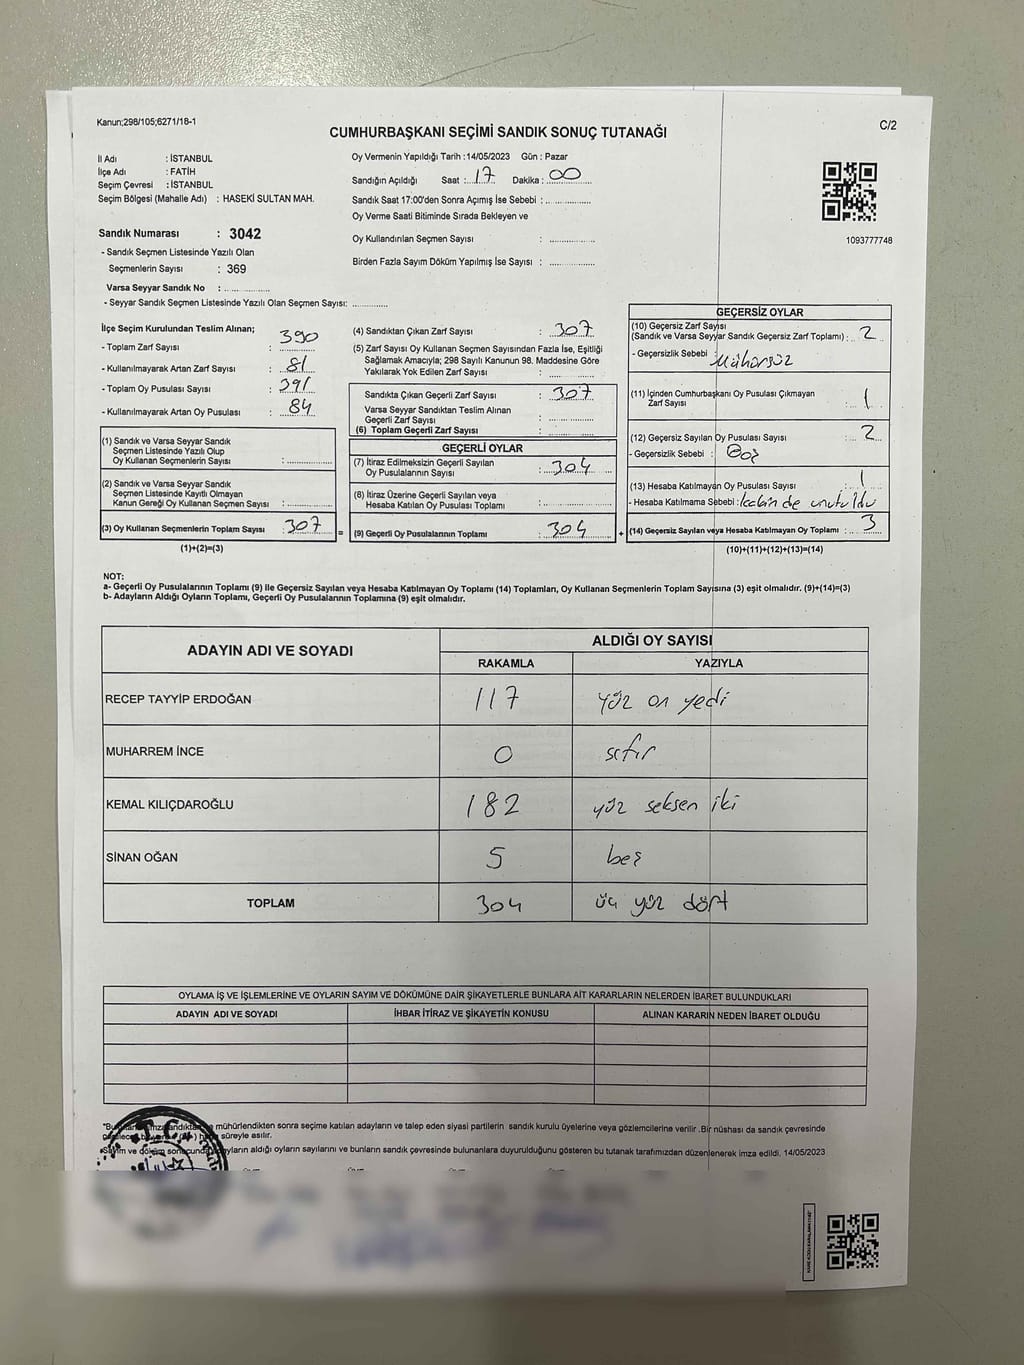 Kanun;298/105;6271/18-1
C/2
CUMHURBAŞKANI SEÇİMİ SANDIK SONUÇ TUTANAĞI
İl Adı : İSTANBUL
İlçe Adı : FATİH
Seçim Çevresi : İSTANBUL
Seçim Bölgesi (Mahalle Adı) : HASEKİ SULTAN MAH.
Sandık Numarası : 3042
- Sandık Seçmen Listesinde Yazılı Olan
Seçmenlerin Sayısı : 369
Varsa Seyyar Sandık No :
- Seyyar Sandık Seçmen Listesinde Yazılı Olan Seçmen Sayısı:
Oy Vermenin Yapıldığı Tarih :14/05/2023 Gün : Pazar
Sandığın Açıldığı Saat : 17 Dakika : 00
Sandık Saat 17:00'den Sonra Açımış İse Sebebi :
Oy Verme Saati Bitiminde Sırada Bekleyen ve
Oy Kullandırılan Seçmen Sayısı :
Birden Fazla Sayım Döküm Yapılmış İse Sayısı :
1093777748
İlçe Seçim Kurulundan Teslim Alınan;
- Toplam Zarf Sayısı : 390
- Kullanılmayarak Artan Zarf Sayısı : 81
- Toplam Oy Pusulası Sayısı : 391
- Kullanılmayarak Artan Oy Pusulası : 84
(1) Sandık ve Varsa Seyyar Sandık
Seçmen Listesinde Yazılı Olup
Oy Kullanan Seçmenlerin Sayısı :
(2) Sandık ve Varsa Seyyar Sandık
Seçmen Listesinde Kayıtlı Olmayan
Kanun Gereği Oy Kullanan Seçmen Sayısı :
(3) Oy Kullanan Seçmenlerin Toplam Sayısı : 307 =
(1)+(2)=(3)
(4) Sandıktan Çıkan Zarf Sayısı : 307
(5) Zarf Sayısı Oy Kullanan Seçmen Sayısından Fazla İse, Eşitliği
Sağlamak Amacıyla; 298 Sayılı Kanunun 98. Maddesine Göre
Yakılarak Yok Edilen Zarf Sayısı :
Sandıkta Çıkan Geçerli Zarf Sayısı : 307
Varsa Seyyar Sandıktan Teslim Alınan
Geçerli Zarf Sayısı :
(6) Toplam Geçerli Zarf Sayısı :
GEÇERLİ OYLAR
(7) İtiraz Edilmeksizin Geçerli Sayılan
Oy Pusulalarının Sayısı : 304
(8) İtiraz Üzerine Geçerli Sayılan veya
Hesaba Katılan Oy Pusulası Toplamı :
(9) Geçerli Oy Pusulalarının Toplamı : 304 +
GEÇERSİZ OYLAR
(10) Geçersiz Zarf Sayısı
(Sandık ve Varsa Seyyar Sandık Geçersiz Zarf Toplamı) : 2
- Geçersizlik Sebebi : Mühürsüz
(11) İçinden Cumhurbaşkanı Oy Pusulası Çıkmayan
Zarf Sayısı : 1
(12) Geçersiz Sayılan Oy Pusulası Sayısı : 2
- Geçersizlik Sebebi : Boş
(13) Hesaba Katılmayan Oy Pusulası Sayısı : 1
- Hesaba Katılmama Sebebi : kabin de unutuldu
(14) Geçersiz Sayılan veya Hesaba Katılmayan Oy Toplamı : 3
(10)+(11)+(12)+(13)=(14)
NOT:
a- Geçerli Oy Pusulalarının Toplamı (9) ile Geçersiz Sayılan veya Hesaba Katılmayan Oy Toplamı (14) Toplamları, Oy Kullanan Seçmenlerin Toplam Sayısına (3) eşit olmalıdır. (9)+(14)=(3)
b- Adayların Aldığı Oyların Toplamı, Geçerli Oy Pusulalarının Toplamına (9) eşit olmalıdır.
ADAYIN ADI VE SOYADI
ALDIĞI OY SAYISI
RAKAMLA YAZIYLA
RECEP TAYYİP ERDOĞAN 117 yüz on yedi
MUHARREM İNCE 0 sıfır
KEMAL KILIÇDAROĞLU 182 yüz seksen iki
SİNAN OĞAN 5 beş
TOPLAM 304 üç yüz dört
OYLAMA İŞ VE İŞLEMLERİNE VE OYLARIN SAYIM VE DÖKÜMÜNE DAİR ŞİKAYETLERLE BUNLARA AİT KARARLARIN NELERDEN İBARET BULUNDUKLARI
ADAYIN ADI VE SOYADI İHBAR İTİRAZ VE ŞİKAYETİN KONUSU ALINAN KARARIN NEDEN İBARET OLDUĞU
mühürlendikten sonra seçime katılan adayların ve talep eden siyasi partilerin sandık kurulu üyelerine veya gözlemcilerine verilir .Bir nüshası da sandık çevresinde
süreyle asılır.
aldığı oyların sayılarını ve bunların sandık çevresinde bulunanlara duyurulduğunu gösteren bu tutanak tarafımızdan düzenlenerek imza edildi. 14/05/2023